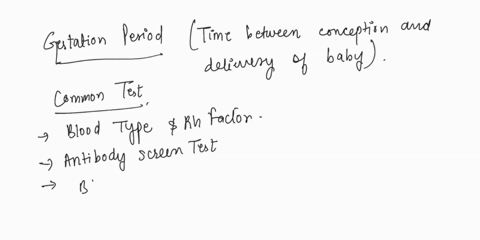 Gestation Period (Time between conception and
delivery of baby).
Common Test.
→ Blood Type & Rh factor.
→ Antibody screen Test
→ B